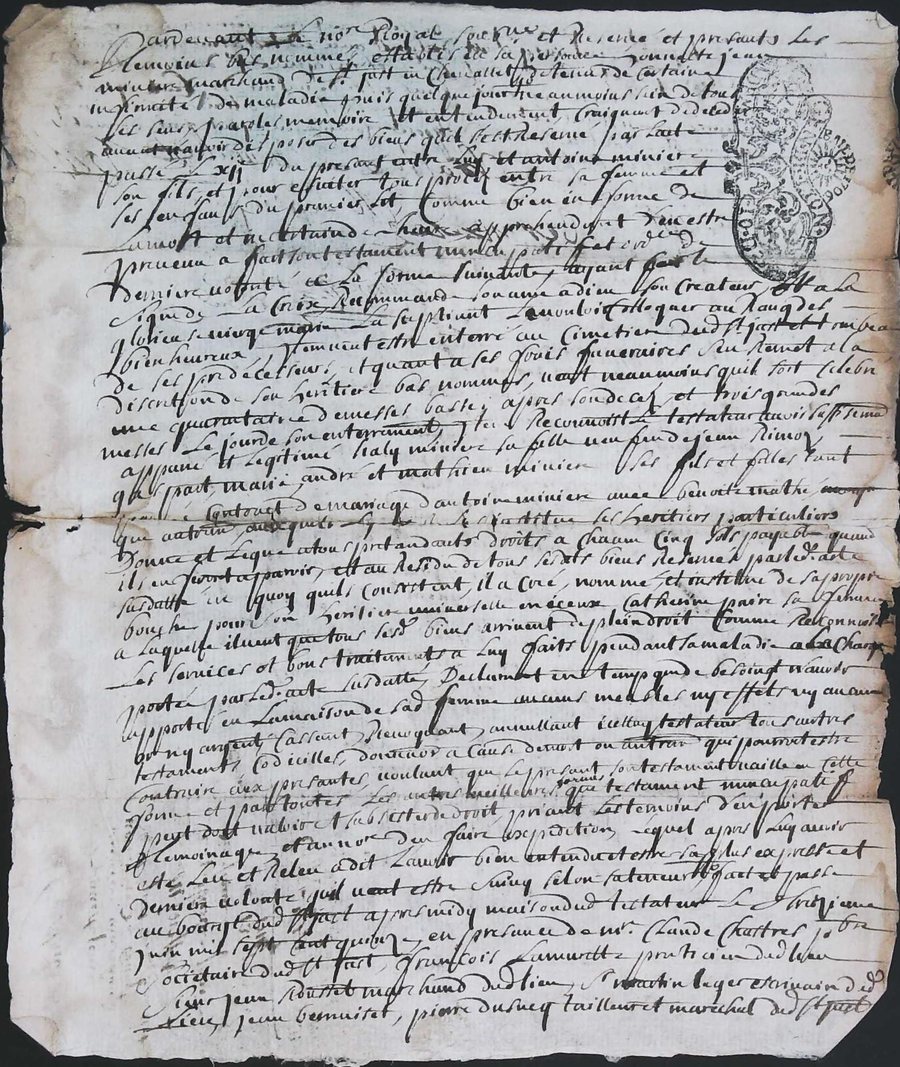 Pardevant le nore Royal soubsne et Reservé et presants les
temoins bas nommes, estably en sa personne honneste jean
miniere marchand de St just en Chevallet detenu de certaine
infirmité de maladie puis quelque jour neaumoins sein de tous
ses sens, parolle memoire et entendement, Craignent de deced
avant navoir desposer des biens quil sest Reservé par lacte
passé le xii du presant entre luy et antoine miniere
son fils, et pour esviter tous proces entre sa femme et
ses enfans du premier lit Comme bien en forme de
la mort et incertain de lheure apprehendant den estre
prevenu a fait son testament nuncupatif et ordce de
derniere volonté en la forme suivante, ayant fait le
signe de la Croix Recommande son ame a dieu son Createur, et a la
glorieuse vierge marie la supliant la vouloir Colloquer au Rang des
bienheureux, Item veut estre enterré au Cimetier dud St just et tombeau
de ses predecesseurs, et quant a ses frais funeraires sen Remet a la
discretion de son heritiere bas nommés, veut neaumoins quil soit Celebré
une quarantaine de messes basses apres son deces, et trois grandes
messes le jour de son enterrement, Item Reconnoist le testateur avoir suffisemt
appané et legitimé Italy miniere sa fille veufve de feu jean Rimoz
qua spart, marie, andré et mathieu miniere ses fils et filles tant
Contract de mariage dantoine miniere avec benoite mathé
que autrem auxquels institue ses heritiers particuliers
donne et legue a tous pretandants droits a chacun Cinq sols payable quand
ils en feront apparoir, et au Residu de tous sesdts biens Reserves par led acte
susdatté en quoy quils Consistent, il a Créé, nommé et institue de sa propre
bouche pour son heritiere universelle Catherine paire sa femme
a laquelle il veut que tous sesd biens arrivent de plein droit Comme Reconnoist
les services et bons traitements a luy faits pendant sa maladie a la Charge
portée par led acte susdatté, Declarant en temps que de besoing navoir
apporté en la maison de sad femme aucuns meubles ny effets ny aucun
or ny argent, Cassant, Revoquant, annullant iceluy testateur tous autres
testaments, Codicilles, donation a Cause de mort ou autres qui pourroit estre
Contraire aux presantes voulant que le presant son testament vaille en Cette
forme et par toutes les autres meilleures formes que testament nuncupatif
peut doit valoir et subsister de droit, priant les temoins den porter
temoinage, et au nore den faire expedition, lequel apres luy avoir
esté leu et Releu a dit lavoir bien entendu et estre sa plus expresse et
derniere volonté quil veut estre suivy selon sa teneur, fait et passé
au bourg dud St just apres midy maison dud testateur le treizieme
juin mil sept cent quinze, en presance de mr Claude Chartres pbre
societaire dud St just, François Lamurette praticien dud lieu
Sieur jean Rousset marchand dud lieu, St martin leger escrivain dud
lieu, jean bernuiset, pierre dusucq tailleur et marechal dud St just